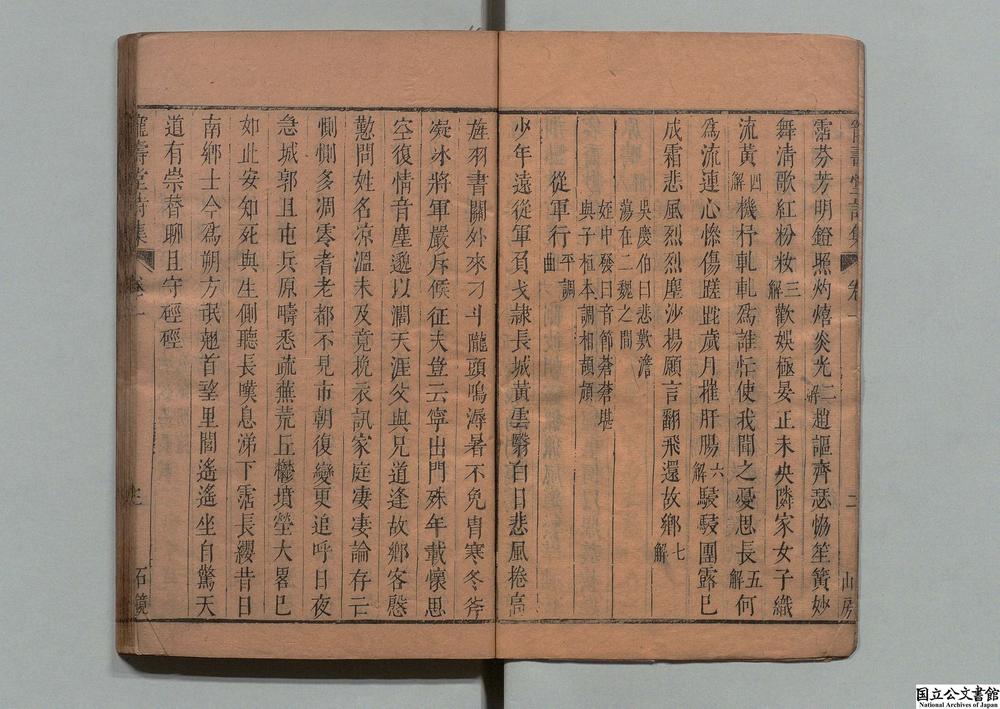 霑芬芳明鐙照灼熺炎光二解趙謳齊瑟恊笙簧妙
舞清歌紅粉妝三解歡娛極晏正未央隣家女子織
流黃四解機杼軋軋為誰忙使我聞之憂思長五解何
為流連心慘傷蹉跎歲月摧肝腸六解駸駸團露已
成霜悲風烈烈塵沙揚願言翻飛還故鄉七解
吳慶伯曰悲歎澹
蕩在二魏之間
姪中發曰音節蒼蒼堪
與子桓本調相頡頏
從軍行平調曲
少年遠從軍負戈隷長城黃雲翳白日悲風捲高
旌羽書關外來刁斗隴頭鳴溽暑不免冑寒冬斧
凝冰將軍嚴斥候征夫豈云寧出門殊年載懷思
空復情音塵邈以濶天涯父與兄道逢故鄉客慇
懃問姓名凉溫未及竟挽衣訊家庭凄凄論存亡
惻惻多凋零耆老都不見市朝復變更追呼日夜
急城郭且屯兵原疇悉疏蕪荒丘鬱墳塋大畧已
如此安知死與生側聽長嘆息涕下霑長纓昔日
南鄉士今為朔方氓翹首望里閭遙遙坐自驚天
道有崇替聊且守硜硜
壽堂詩集 卷一 二 山房
壽堂詩集 卷一 三 石鏡
国立公文書館
National Archives of Japan